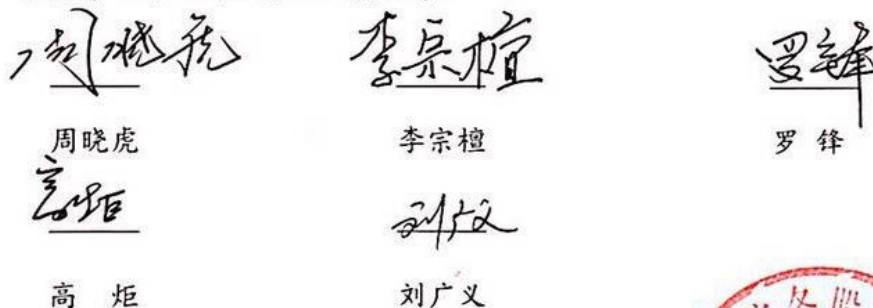 周晓虎 李宗檀 罗锋
周晓虎 李宗檀 罗 锋
高炬 刘广义
高 炬 刘广义